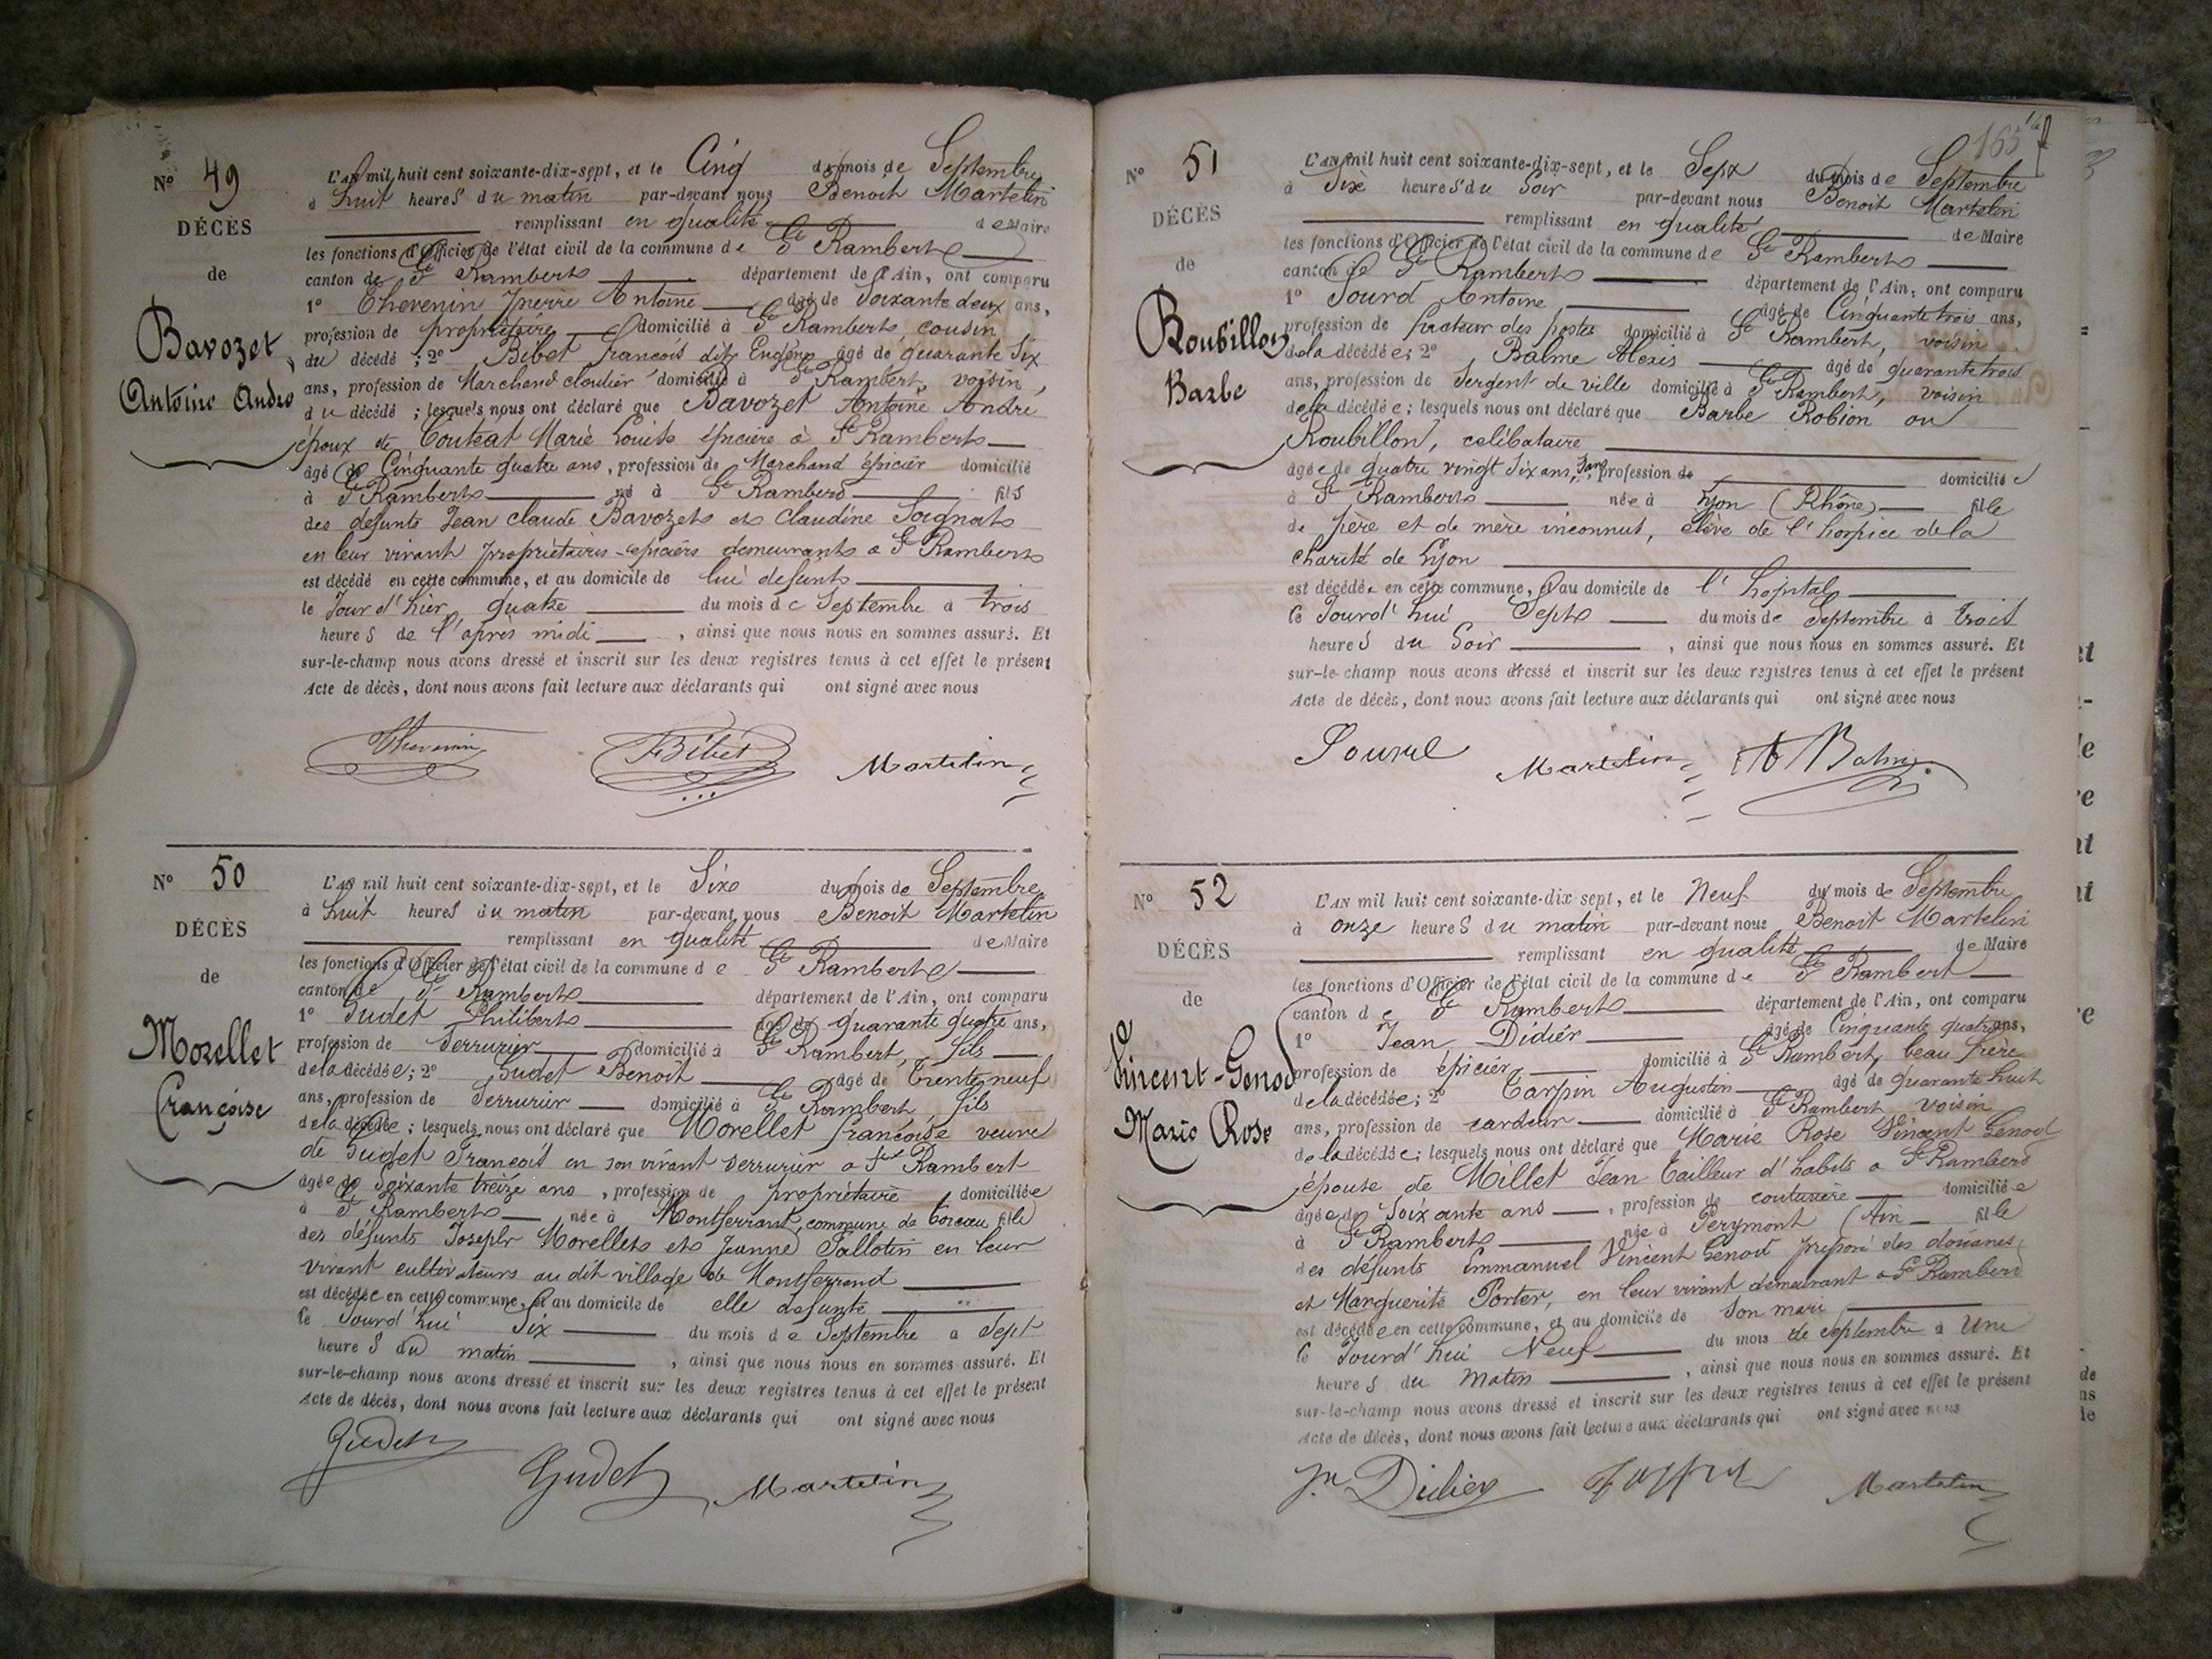 Nº 49
DÉCÈS
de
Bavozet
Antoine André
L'AN mil huit cent soixante-dix-sept, et le Cinq du mois de Septembre
à huit heures du matin par-devant nous Benoit Martelin
remplissant en qualité de Maire
les fonctions d'Officier de l'état civil de la commune de St Rambert
canton de St Rambert département de l'Ain, ont comparu
1º Thevenin pierre Antoine âgé de Soixante deux ans,
profession de propriétaire domicilié à St Rambert, cousin
du décédé ; 2º Bibet françois dit Eugène âgé de quarante Six
ans, profession de Marchand cloutier domicilié à St Rambert, voisin,
du décédé ; lesquels nous ont déclaré que Bavozet Antoine André
époux de Couteat Marie Louise épicière à St Rambert
âgé de Cinquante quatre ans, profession de Marchand épicier domicilié
à St Rambert né à St Rambert fils
des defunts Jean Claude Bavozet et Claudine Soignat
en leur vivant propriétaires-épiciers demeurants a St Rambert
est décédé en cette commune, et au domicile de lui defunt
le Jour d'hier quatre du mois de Septembre à trois
heures de l'après midi, ainsi que nous nous en sommes assuré. Et
sur-le-champ nous avons dressé et inscrit sur les deux registres tenus à cet effet le présent
Acte de décès, dont nous avons fait lecture aux déclarants qui ont signé avec nous
Thevenin FBibet Martelin
Nº 50
DÉCÈS
de
Morellet
Françoise
L'AN mil huit cent soixante-dix-sept, et le Six du mois de Septembre
à huit heures du matin par-devant nous Benoit Martelin
remplissant en qualité de Maire
les fonctions d'Officier de l'état civil de la commune de St Rambert
canton de St Rambert département de l'Ain, ont comparu
1º Gudet Philibert âgé de quarante quatre ans,
profession de Serrurier domicilié à St Rambert, fils
de la décédée ; 2º Gudet Benoit âgé de Trente neuf
ans, profession de Serrurier domicilié à St Rambert, fils
de la décédée ; lesquels nous ont déclaré que Morellet françoise veuve
de Gudet François en son vivant serrurier a St Rambert
âgée de Soixante treize ans, profession de propriétaire domiciliée
à St Rambert née à Montferrant, commune de Torcieu fille
des défunts Joseph Morellet et Jeanne Tallotin en leur
vivant cultivateurs au dit village de Montferrand
est décédée en cette commune, et au domicile de elle defunte
le Jourd'hui Six du mois de Septembre a Sept
heures du matin, ainsi que nous nous en sommes assuré. Et
sur-le-champ nous avons dressé et inscrit sur les deux registres tenus à cet effet le présent
Acte de décès, dont nous avons fait lecture aux déclarants qui ont signé avec nous
Gudet Gudet Martelin
165
Nº 51
DÉCÈS
de
Roubillon
Barbe
L'AN mil huit cent soixante-dix-sept, et le Sept du mois de Septembre
à Six heures du Soir par-devant nous Benoit Martelin
remplissant en qualité de Maire
les fonctions d'Officier de l'état civil de la commune de St Rambert
canton de St Rambert département de l'Ain, ont comparu
1º Sourd Antoine âgé de Cinquante trois ans,
profession de facteur des postes domicilié à St Rambert, voisin
de la décédée ; 2º Balme Alexis âgé de quarante trois
ans, profession de Sergent de ville domicilié à St Rambert, voisin
de la décédée ; lesquels nous ont déclaré que Barbe Robion ou
Roubillon, celibataire
âgée de quatre vingt Six ans, sans profession de domiciliée
à St Rambert née à Lyon (Rhône) fille
de père et de mère inconnus, élève de l'hospice de la
charité de Lyon
est décédée en cette commune, et au domicile de l'hopital
le Jourd'hui Sept du mois de Septembre à trois
heures du Soir, ainsi que nous nous en sommes assuré. Et
sur-le-champ nous avons dressé et inscrit sur les deux registres tenus à cet effet le présent
Acte de décès, dont nous avons fait lecture aux déclarants qui ont signé avec nous
Sourd Martelin A Balme
Nº 52
DÉCÈS
de
Vincent-Genod
Marie Rose
L'AN mil huit cent soixante-dix-sept, et le Neuf du mois de Septembre
à onze heures du matin par-devant nous Benoit Martelin
remplissant en qualité de Maire
les fonctions d'Officier de l'état civil de la commune de St Rambert
canton de St Rambert département de l'Ain, ont comparu
1º Jean Didier âgé de Cinquante quatre ans,
profession de épicier domicilié à St Rambert, beau frère
de la décédée ; 2º Carpin Augustin âgé de quarante huit
ans, profession de cardeur domicilié à St Rambert voisin
de la décédée ; lesquels nous ont déclaré que Marie Rose Vincent Genod
épouse de Millet Jean Tailleur d'habits a St Rambert
âgée de Soixante ans, profession de couturière domiciliée
à St Rambert née à Serymont (Ain fille
des défunts Emmanuel Vincent Genod préposé des douanes
et Marguerite Porter, en leur vivant demeurant a St Rambert
est décédée en cette commune, et au domicile de son mari
le Jourd'hui Neuf du mois de Septembre à Une
heures du Matin, ainsi que nous nous en sommes assuré. Et
sur-le-champ nous avons dressé et inscrit sur les deux registres tenus à cet effet le présent
Acte de décès, dont nous avons fait lecture aux déclarants qui ont signé avec nous
Jn Didier Martelin